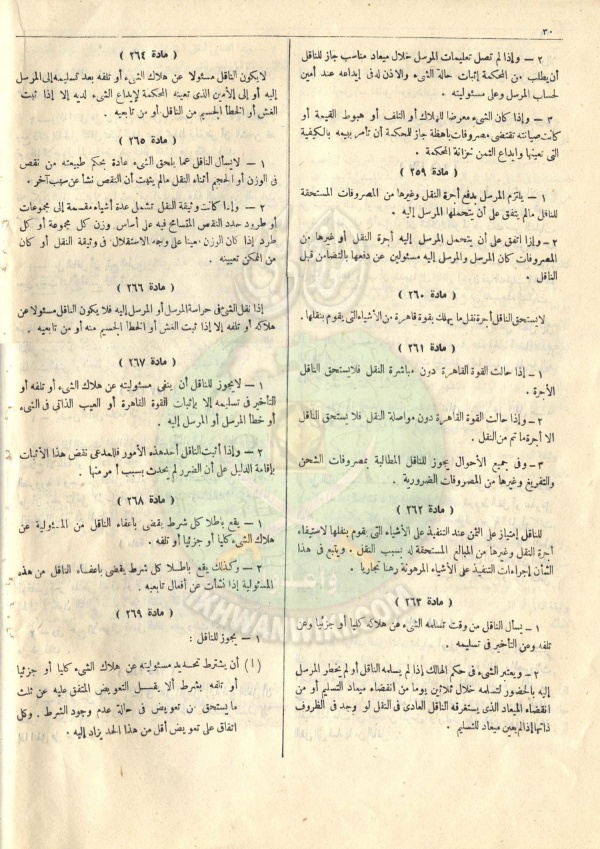 ٣٠
٢ – وإذا لم تصل تعليمات المرسل خلال ميعاد مناسب جاز للناقل
أن يطلب من المحكمة إثبات حالة الشىء والاذن له فى إيداعه عند أمين
لحساب المرسل وعلى مسئوليته .
٣ – وإذا كان الشىء معرضا للهلاك أو التلف أو هبوط القيمة أو
كانت صيانته تقتضى مصروفات باهظة جاز للمحكمة أن تأمر ببيعه بالكيفية
التى تعينها وإيداع الثمن خزانة المحكمة .
( مادة ٢٥٩ )
١ – يلتزم المرسل بدفع أجرة النقل وغيرها من المصروفات المستحقة
للناقل مالم يتفق على أن يتحملها المرسل إليه .
٢ – وإذا اتفق على أن يتحمل المرسل إليه أجرة النقل أو غيرها من
المصروفات كان المرسل والمرسل إليه مسئولين عن دفعها بالتضامن قبل
الناقل .
( مادة ٢٦٠ )
لايستحق الناقل أجرة نقل ما يهلك بقوة قاهرة من الأشياء التى يقوم بنقلها .
( مادة ٢٦١ )
١ – إذا حالت القوة القاهرة دون مباشرة النقل فلا يستحق الناقل
الأجرة .
٢ – وإذا حالت القوة القاهرة دون مواصلة النقل فلا يستحق الناقل
الا أجرة ما تم من النقل .
٣ – وفى جميع الأحوال يجوز للناقل المطالبة بمصروفات الشحن
والتفريغ وغيرها من المصروفات الضرورية .
( مادة ٢٦٢ )
للناقل إمتياز على الثمن عند التنفيذ على الأشياء التى يقوم بنقلها لاستيفاء
أجرة النقل وغيرها من المبالغ المستحقة له بسبب النقل . ويتبع فى هذا
الشأن إجراءات التنفيذ على الأشياء المرهونة رهنا تجاريا .
( مادة ٢٦٣ )
١ – يسأل الناقل من وقت تسلمه الشىء عن هلاكه كليا أو جزئيا وعن
تلفه وعن التأخير فى تسليمه .
٢ – ويعتبر الشىء فى حكم الهالك إذا لم يسلمه الناقل أو لم يخطر المرسل
إليه بالحضور لتسلمه خلال ثلاثين يوما من انقضاء ميعاد التسليم أو من
انقضاء الميعاد الذى يستغرقه الناقل العادى فى النقل لو وجد فى الظروف
ذاتها إذا لم يعين ميعاد للتسليم .
( مادة ٢٦٤ )
لايكون الناقل مسئولا عن هلاك الشىء أو تلفه بعد تسليمه إلى المرسل
إليه أو إلى الأمين الذى تعينه المحكمة لإيداع الشىء لديه إلا إذا ثبت
الغش أو الخطأ الجسيم من الناقل أو من تابعيه .
( مادة ٢٦٥ )
١ – لايسأل الناقل عما يلحق الشىء عادة بحكم طبيعته من نقص
فى الوزن أو الحجم أثناء النقل مالم يثبت أن النقص نشأ عن سبب آخر .
٢ – وإذا كانت وثيقة النقل تشمل عدة أشياء مقسمة إلى مجموعات
أو طرود حدد النقص المتسامح فيه على أساس وزن كل مجموعة أو كل
طرد إذا كان الوزن معينا على وجه الاستقلال فى وثيقة النقل أو كان
من الممكن تعيينه .
( مادة ٢٦٦ )
إذا نقل الشىء فى حراسة المرسل أو المرسل إليه فلا يكون الناقل مسئولا عن
هلاكه أو تلفه إلا إذا ثبت الغش أو الخطأ الجسيم منه أو من تابعيه .
( مادة ٢٦٧ )
١ – لايجوز للناقل أن ينفى مسئوليته عن هلاك الشىء أو تلفه أو
التأخير فى تسليمه إلا بإثبات القوة القاهرة أو العيب الذاتى فى الشىء
أو خطأ المرسل أو المرسل إليه .
٢ – وإذا أثبت الناقل أحد هذه الأمور فللمدعى نقض هذا الأثبات
بإقامة الدليل على أن الضرر لم يحدث بسبب أمر منها .
( مادة ٢٦٨ )
١ – يقع باطلا كل شرط يقضى باعفاء الناقل من المسئولية عن
هلاك الشىء كليا أو جزئيا أو تلفه .
٢ – وكذلك يقع باطلا كل شرط يقضى باعفاء الناقل من هذه
المسئولية إذا نشأت عن أفعال تابعيه .
( مادة ٢٦٩ )
١ – يجوز للناقل :
( ا ) أن يشترط تحديد مسئوليته عن هلاك الشىء كليا أو جزئيا
أو تلفه بشرط ألا يقل التعويض المتفق عليه عن ثلث
ما يستحق من تعويض فى حالة عدم وجود الشرط . وكل
اتفاق على تعويض أقل من هذا الحد يزاد إليه .
وأعدوا
IKHWANWIKI.COM